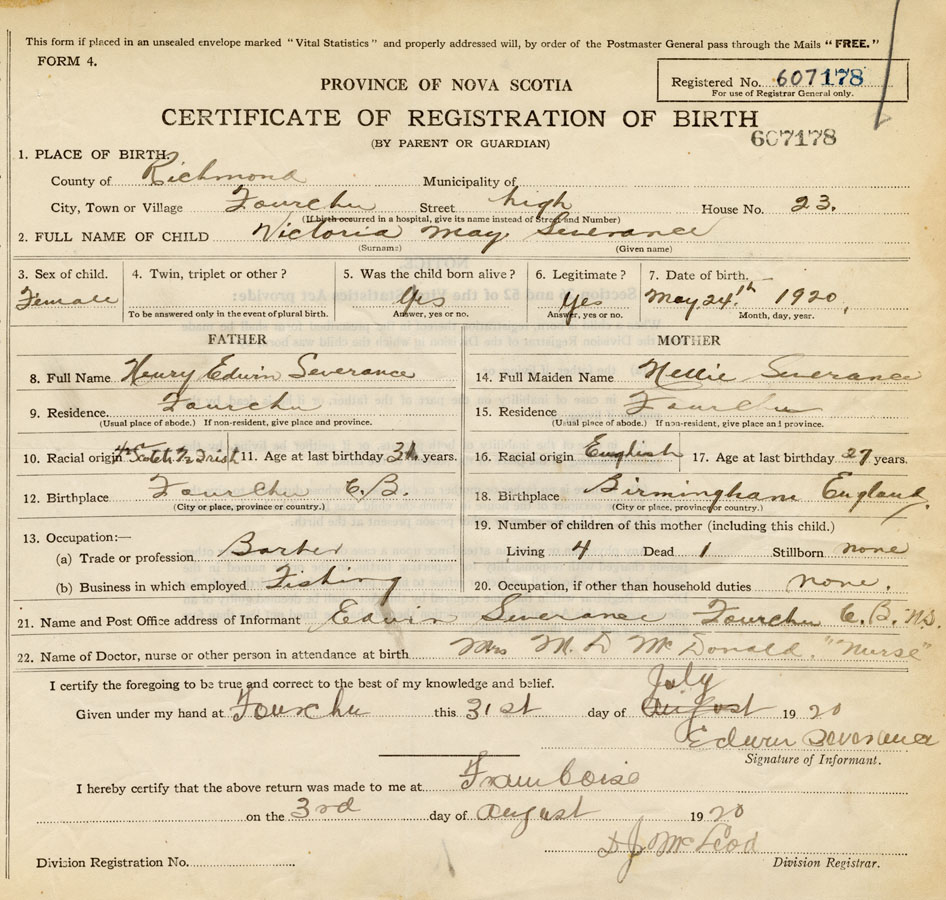 This form if placed in an unsealed envelope marked "Vital Statistics" and properly addressed will, by order of the Postmaster General pass through the Mails "FREE."
FORM 4.
Registered No. 607178
For use of Registrar General only.
PROVINCE OF NOVA SCOTIA
CERTIFICATE OF REGISTRATION OF BIRTH
607178
(BY PARENT OR GUARDIAN)
1. PLACE OF BIRTH.
County of Richmond Municipality of
City, Town or Village Fourchu Street high House No. 23.
(If birth occurred in a hospital, give its name instead of Street and Number)
2. FULL NAME OF CHILD Victoria May Severance
(Surname) (Given name)
3. Sex of child. 4. Twin, triplet or other? 5. Was the child born alive? 6. Legitimate? 7. Date of birth.
Female Yes Yes May 24th 1920
To be answered only in the event of plural birth. Answer, yes or no. Answer, yes or no. Month, day, year.
FATHER MOTHER
8. Full Name Henry Edwin Severance 14. Full Maiden Name Nellie Severance
9. Residence. Fourchu 15. Residence Fourchu
(Usual place of abode.) If non-resident, give place and province. (Usual place of abode.) If non-resident, give place and province.
10. Racial origin Scotch Irish 11. Age at last birthday years. 16. Racial origin English 17. Age at last birthday 27 years.
12. Birthplace Fourchu C.B. 18. Birthplace Birmingham England.
(City or place, province or country.) (City or place, province or country.)
13. Occupation:— 19. Number of children of this mother (including this child.)
(a) Trade or profession Barber Living 4 Dead 1 Stillborn none
(b) Business in which employed Fishing 20. Occupation, if other than household duties none.
21. Name and Post Office address of Informant Edwin Severance Fourchu C.B. N.S.
22. Name of Doctor, nurse or other person in attendance at birth Mrs M. D McDonald. "Nurse"
I certify the foregoing to be true and correct to the best of my knowledge and belief. July
Given under my hand at Fourchu this 31st day of August 1920
Edwin Severance
Signature of Informant.
I hereby certify that the above return was made to me at Framboise
on the 3rd day of August 1920
D J McLeod
Division Registration No. Division Registrar.